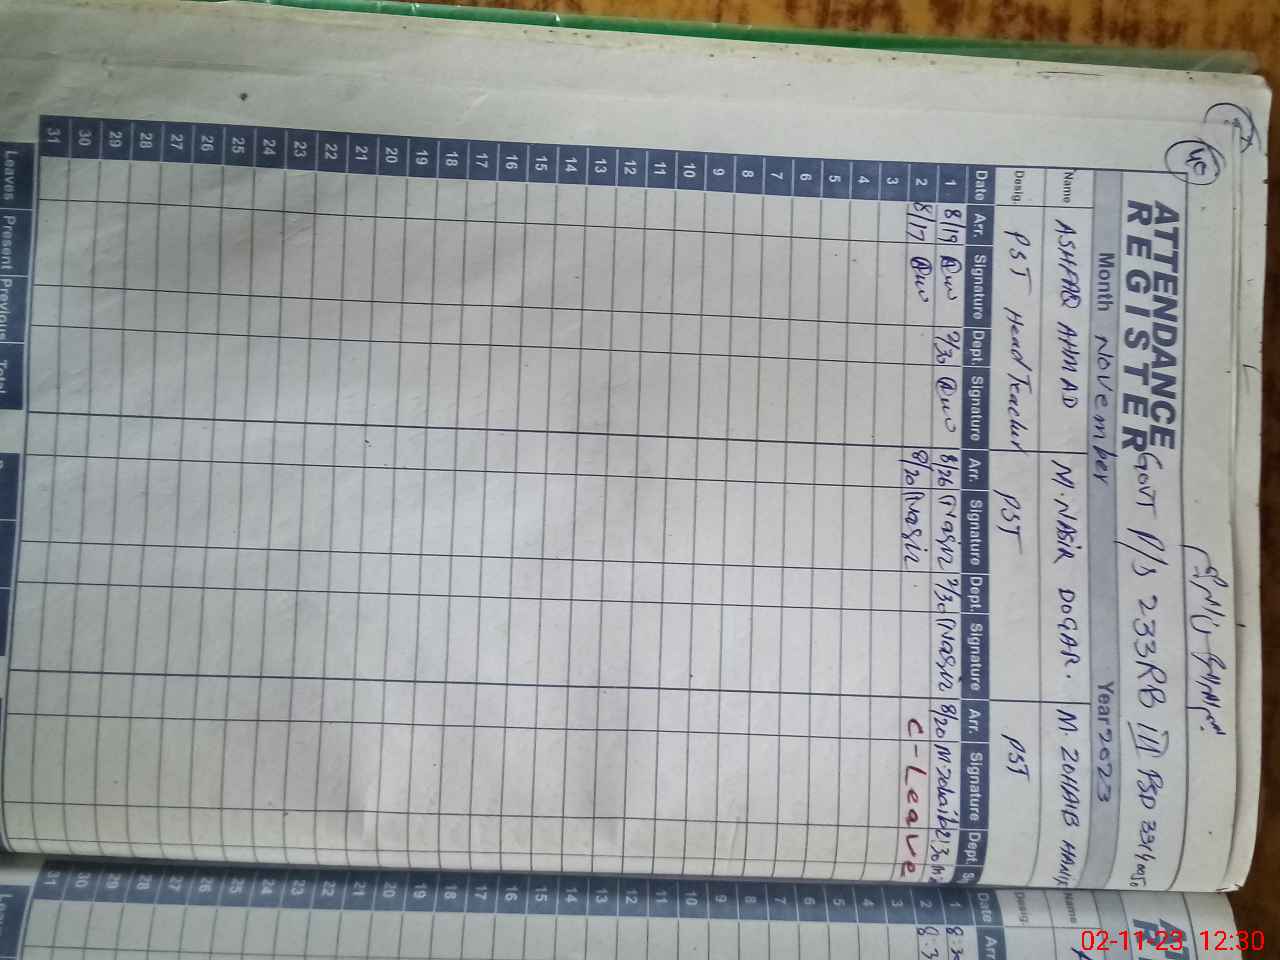 40
ATTENDANCE
REGISTER
GOVT P/S 233RB III PSD
Month November Year 2023
Name ASHFAQ AHMAD M. NASIR DOGAR. M. ZOHAIB HANIF
Desig. PST Head Teacher PST PST
Date Arr. Signature Dept. Signature Arr. Signature Dept. Signature Arr. Signature Dept.
1 8/19 7/30 8/26 Nasir 2/30 Nasir 8/20 M. Zohaib 2/30
2 8/17 8/20 Nasir C-Leave
3
4
5
6
7
8
9
10
11
12
13
14
15
16
17
18
19
20
21
22
23
24
25
26
27
28
29
30
31
Leaves Present Previous Total
Date Arr
Name
Desig.
1 8:30
2 8:3
3
4
5
6
7
8
9
10
11
12
13
14
15
16
17
18
19
20
21
22
23
24
25
26
27
28
29
30
31
02-11-23 12:30